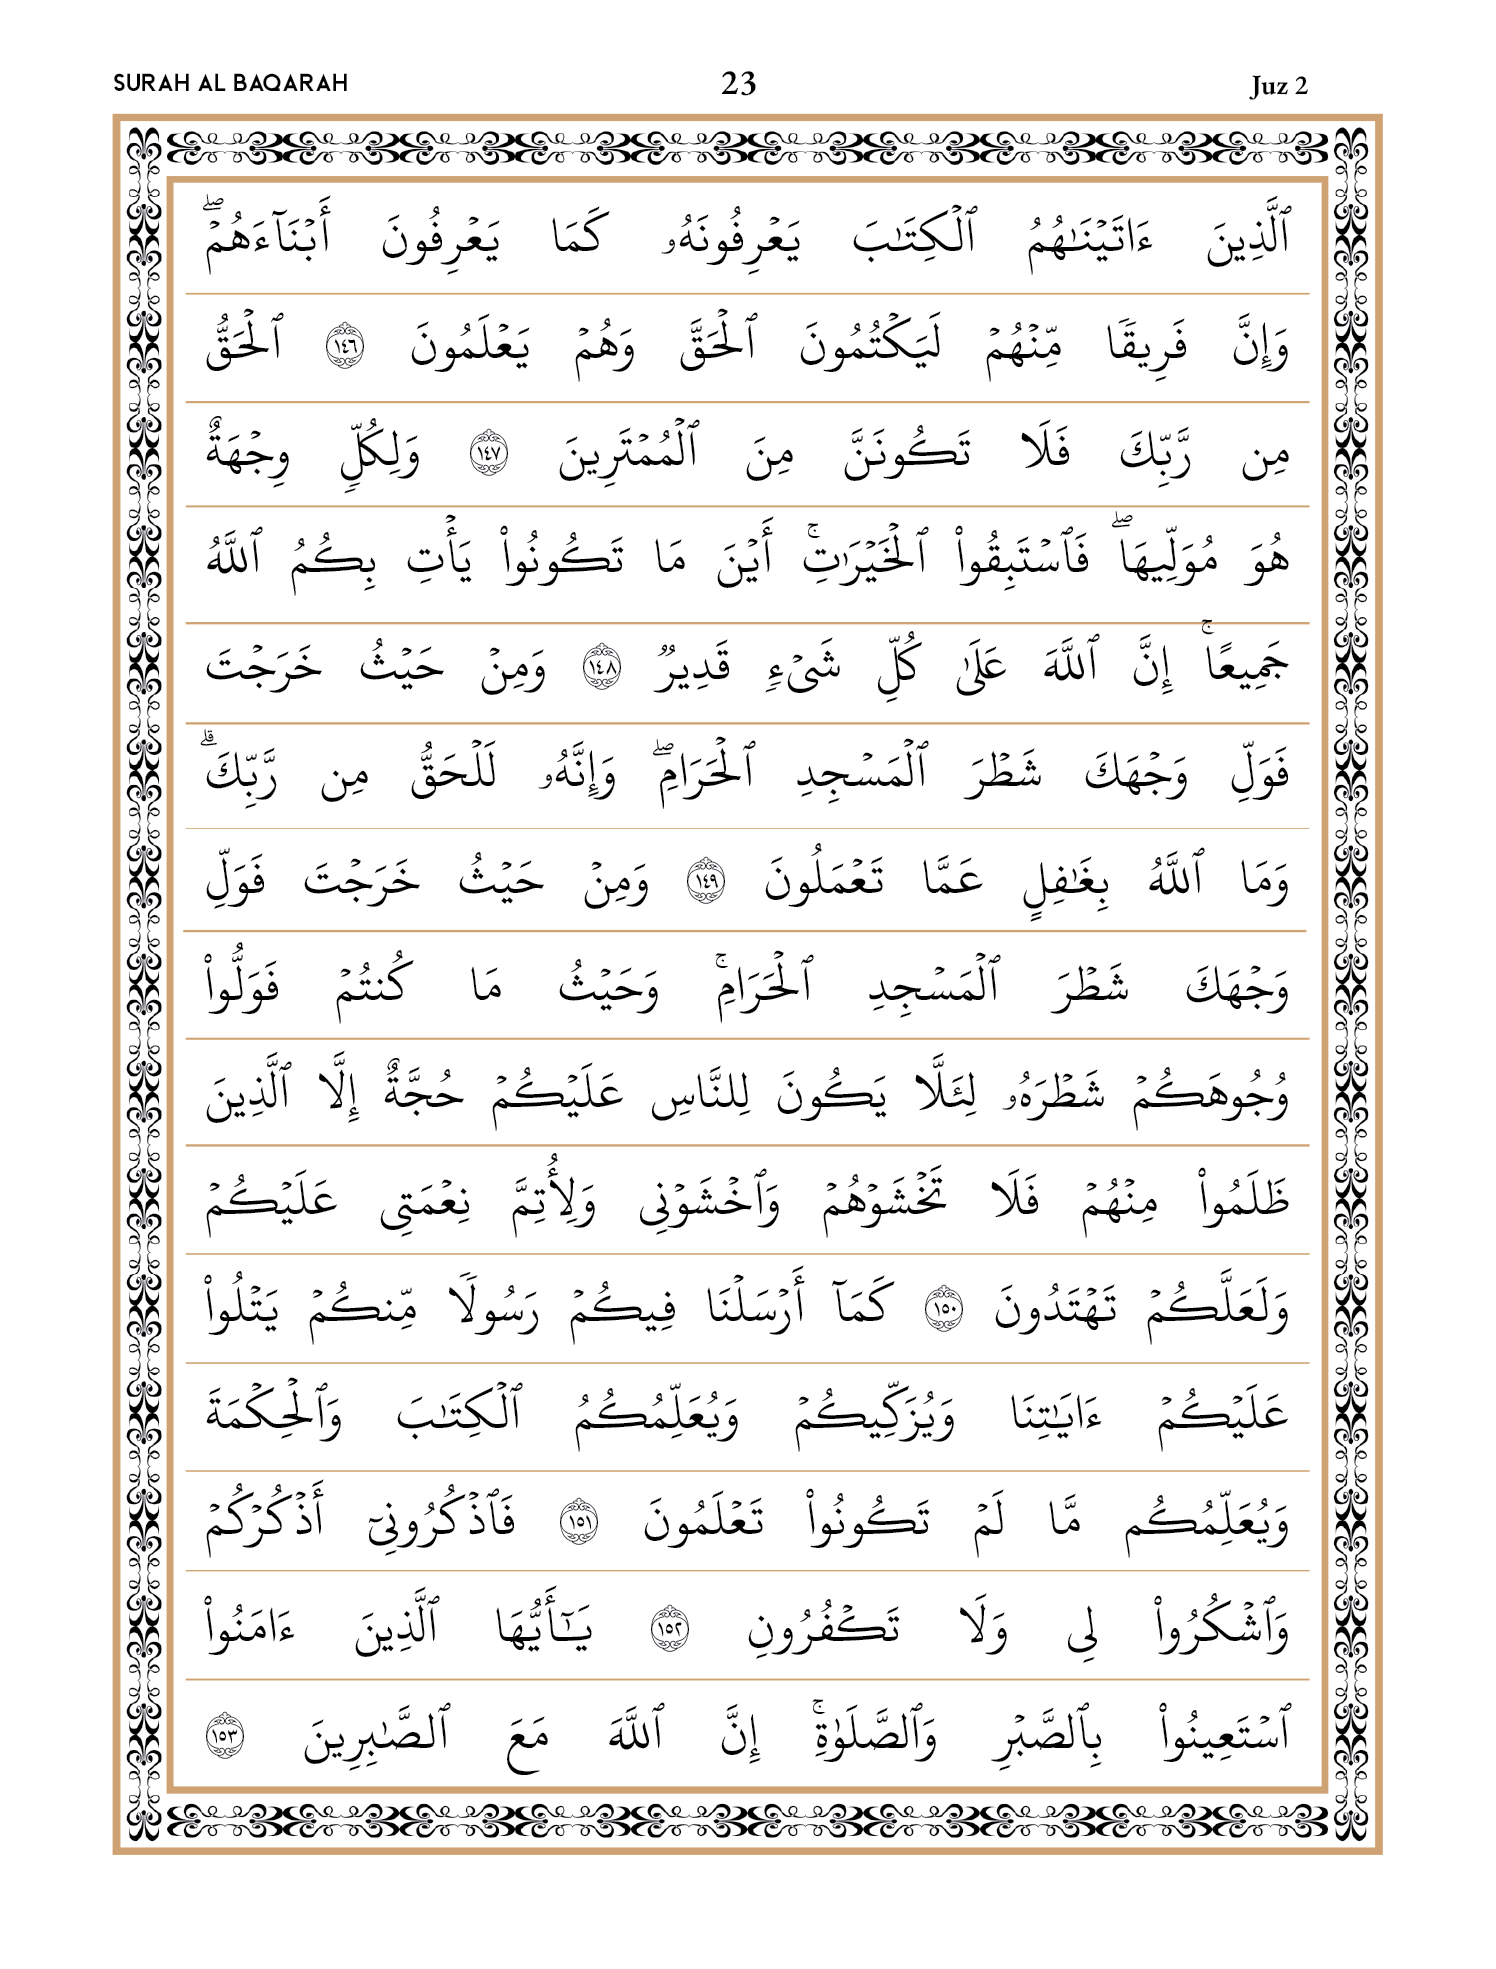 SURAH AL BAQARAH 23 Juz 2
ٱلَّذِينَ ءَاتَيْنَـٰهُمُ ٱلْكِتَـٰبَ يَعْرِفُونَهُۥ كَمَا يَعْرِفُونَ أَبْنَآءَهُمْ ۖ
وَإِنَّ فَرِيقًا مِّنْهُمْ لَيَكْتُمُونَ ٱلْحَقَّ وَهُمْ يَعْلَمُونَ ١٤٦ ٱلْحَقُّ
مِن رَّبِّكَ فَلَا تَكُونَنَّ مِنَ ٱلْمُمْتَرِينَ ١٤٧ وَلِكُلٍّ وِجْهَةٌ
هُوَ مُوَلِّيهَا ۖ فَٱسْتَبِقُوا۟ ٱلْخَيْرَٰتِ ۚ أَيْنَ مَا تَكُونُوا۟ يَأْتِ بِكُمُ ٱللَّهُ
جَمِيعًا ۚ إِنَّ ٱللَّهَ عَلَىٰ كُلِّ شَىْءٍ قَدِيرٌ ١٤٨ وَمِنْ حَيْثُ خَرَجْتَ
فَوَلِّ وَجْهَكَ شَطْرَ ٱلْمَسْجِدِ ٱلْحَرَامِ ۖ وَإِنَّهُۥ لَلْحَقُّ مِن رَّبِّكَ ۗ
وَمَا ٱللَّهُ بِغَـٰفِلٍ عَمَّا تَعْمَلُونَ ١٤٩ وَمِنْ حَيْثُ خَرَجْتَ فَوَلِّ
وَجْهَكَ شَطْرَ ٱلْمَسْجِدِ ٱلْحَرَامِ ۚ وَحَيْثُ مَا كُنتُمْ فَوَلُّوا۟
وُجُوهَكُمْ شَطْرَهُۥ لِئَلَّا يَكُونَ لِلنَّاسِ عَلَيْكُمْ حُجَّةٌ إِلَّا ٱلَّذِينَ
ظَلَمُوا۟ مِنْهُمْ فَلَا تَخْشَوْهُمْ وَٱخْشَوْنِى وَلِأُتِمَّ نِعْمَتِى عَلَيْكُمْ
وَلَعَلَّكُمْ تَهْتَدُونَ ١٥٠ كَمَآ أَرْسَلْنَا فِيكُمْ رَسُولًا مِّنكُمْ يَتْلُوا۟
عَلَيْكُمْ ءَايَـٰتِنَا وَيُزَكِّيكُمْ وَيُعَلِّمُكُمُ ٱلْكِتَـٰبَ وَٱلْحِكْمَةَ
وَيُعَلِّمُكُم مَّا لَمْ تَكُونُوا۟ تَعْلَمُونَ ١٥١ فَٱذْكُرُونِىٓ أَذْكُرْكُمْ
وَٱشْكُرُوا۟ لِى وَلَا تَكْفُرُونِ ١٥٢ يَـٰٓأَيُّهَا ٱلَّذِينَ ءَامَنُوا۟
ٱسْتَعِينُوا۟ بِٱلصَّبْرِ وَٱلصَّلَوٰةِ ۚ إِنَّ ٱللَّهَ مَعَ ٱلصَّـٰبِرِينَ ١٥٣